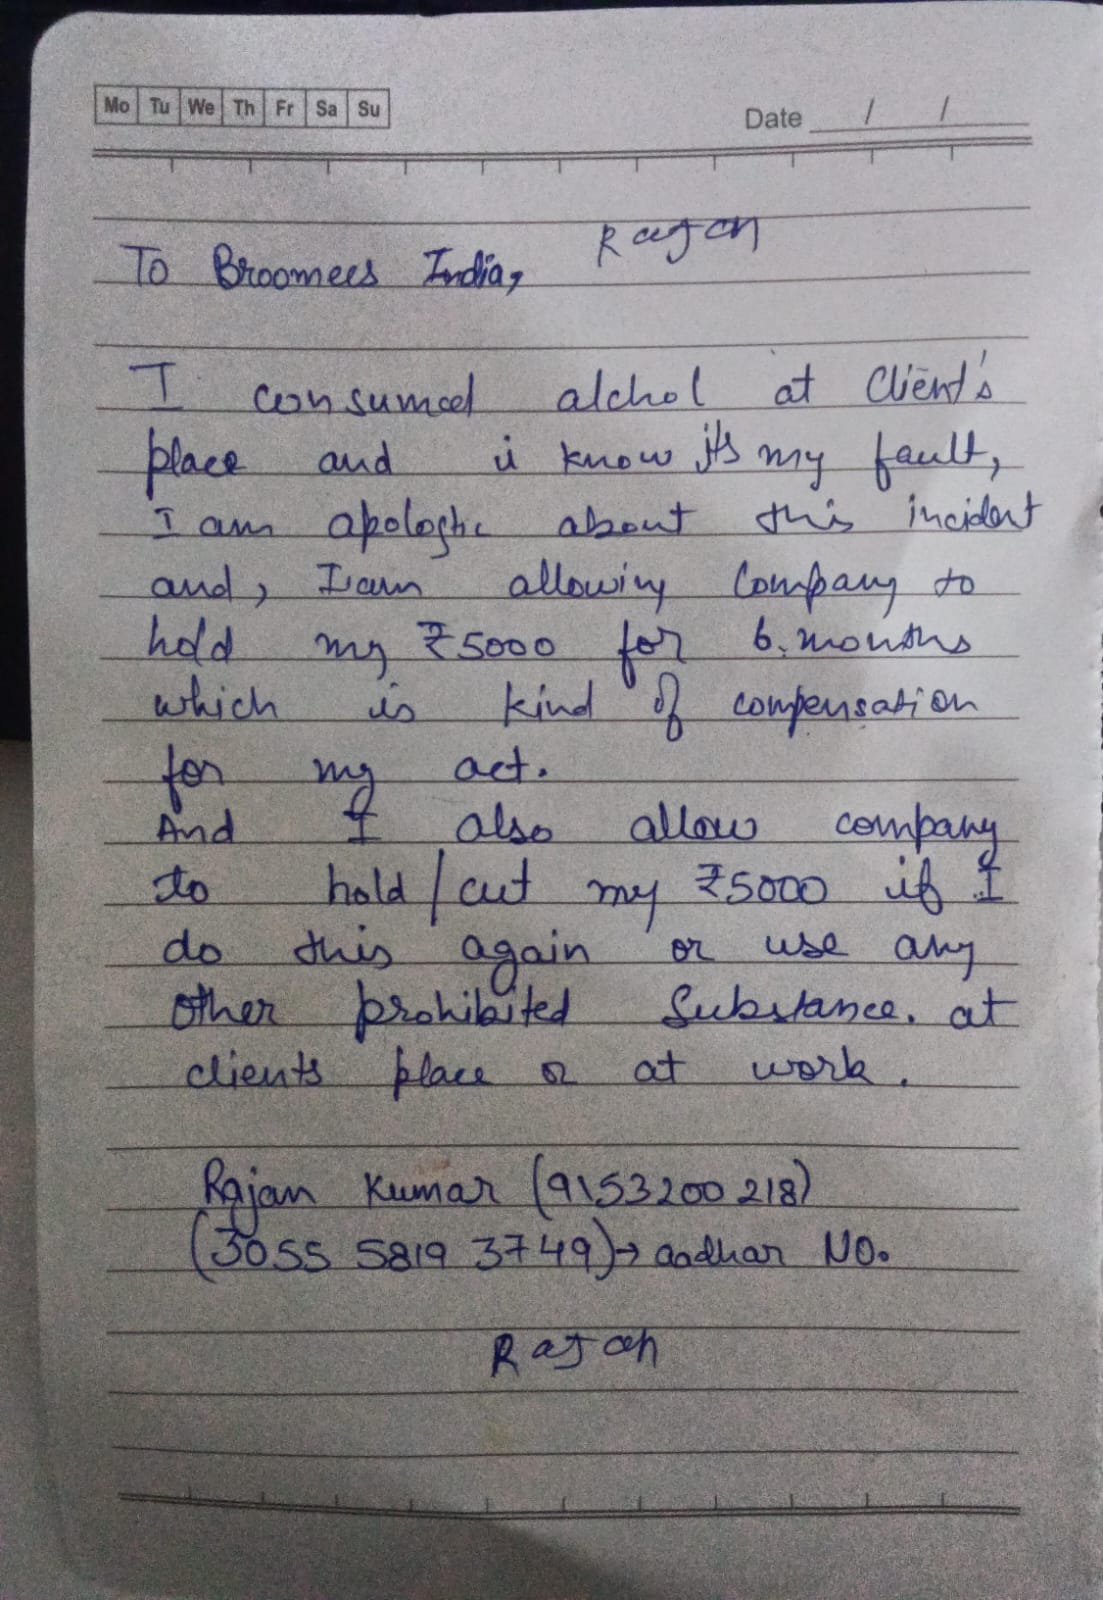 Mo Tu We Th Fr Sa Su
Date / /
Rajan
To Broomees India,
I consumed alchol at Client's
place and i know it's my fault,
I am apologhc about this incident
and, I am allowing Company to
hold my ₹5000 for 6. months
which is kind of compensation
for my act.
And I also allow company
to hold/cut my ₹5000 if I
do this again or use any
other prohibited Substance. at
clients place or at work.
Rajan Kumar (9153200218)
(3055 5819 3749)→ aadhar NO.
Rajan